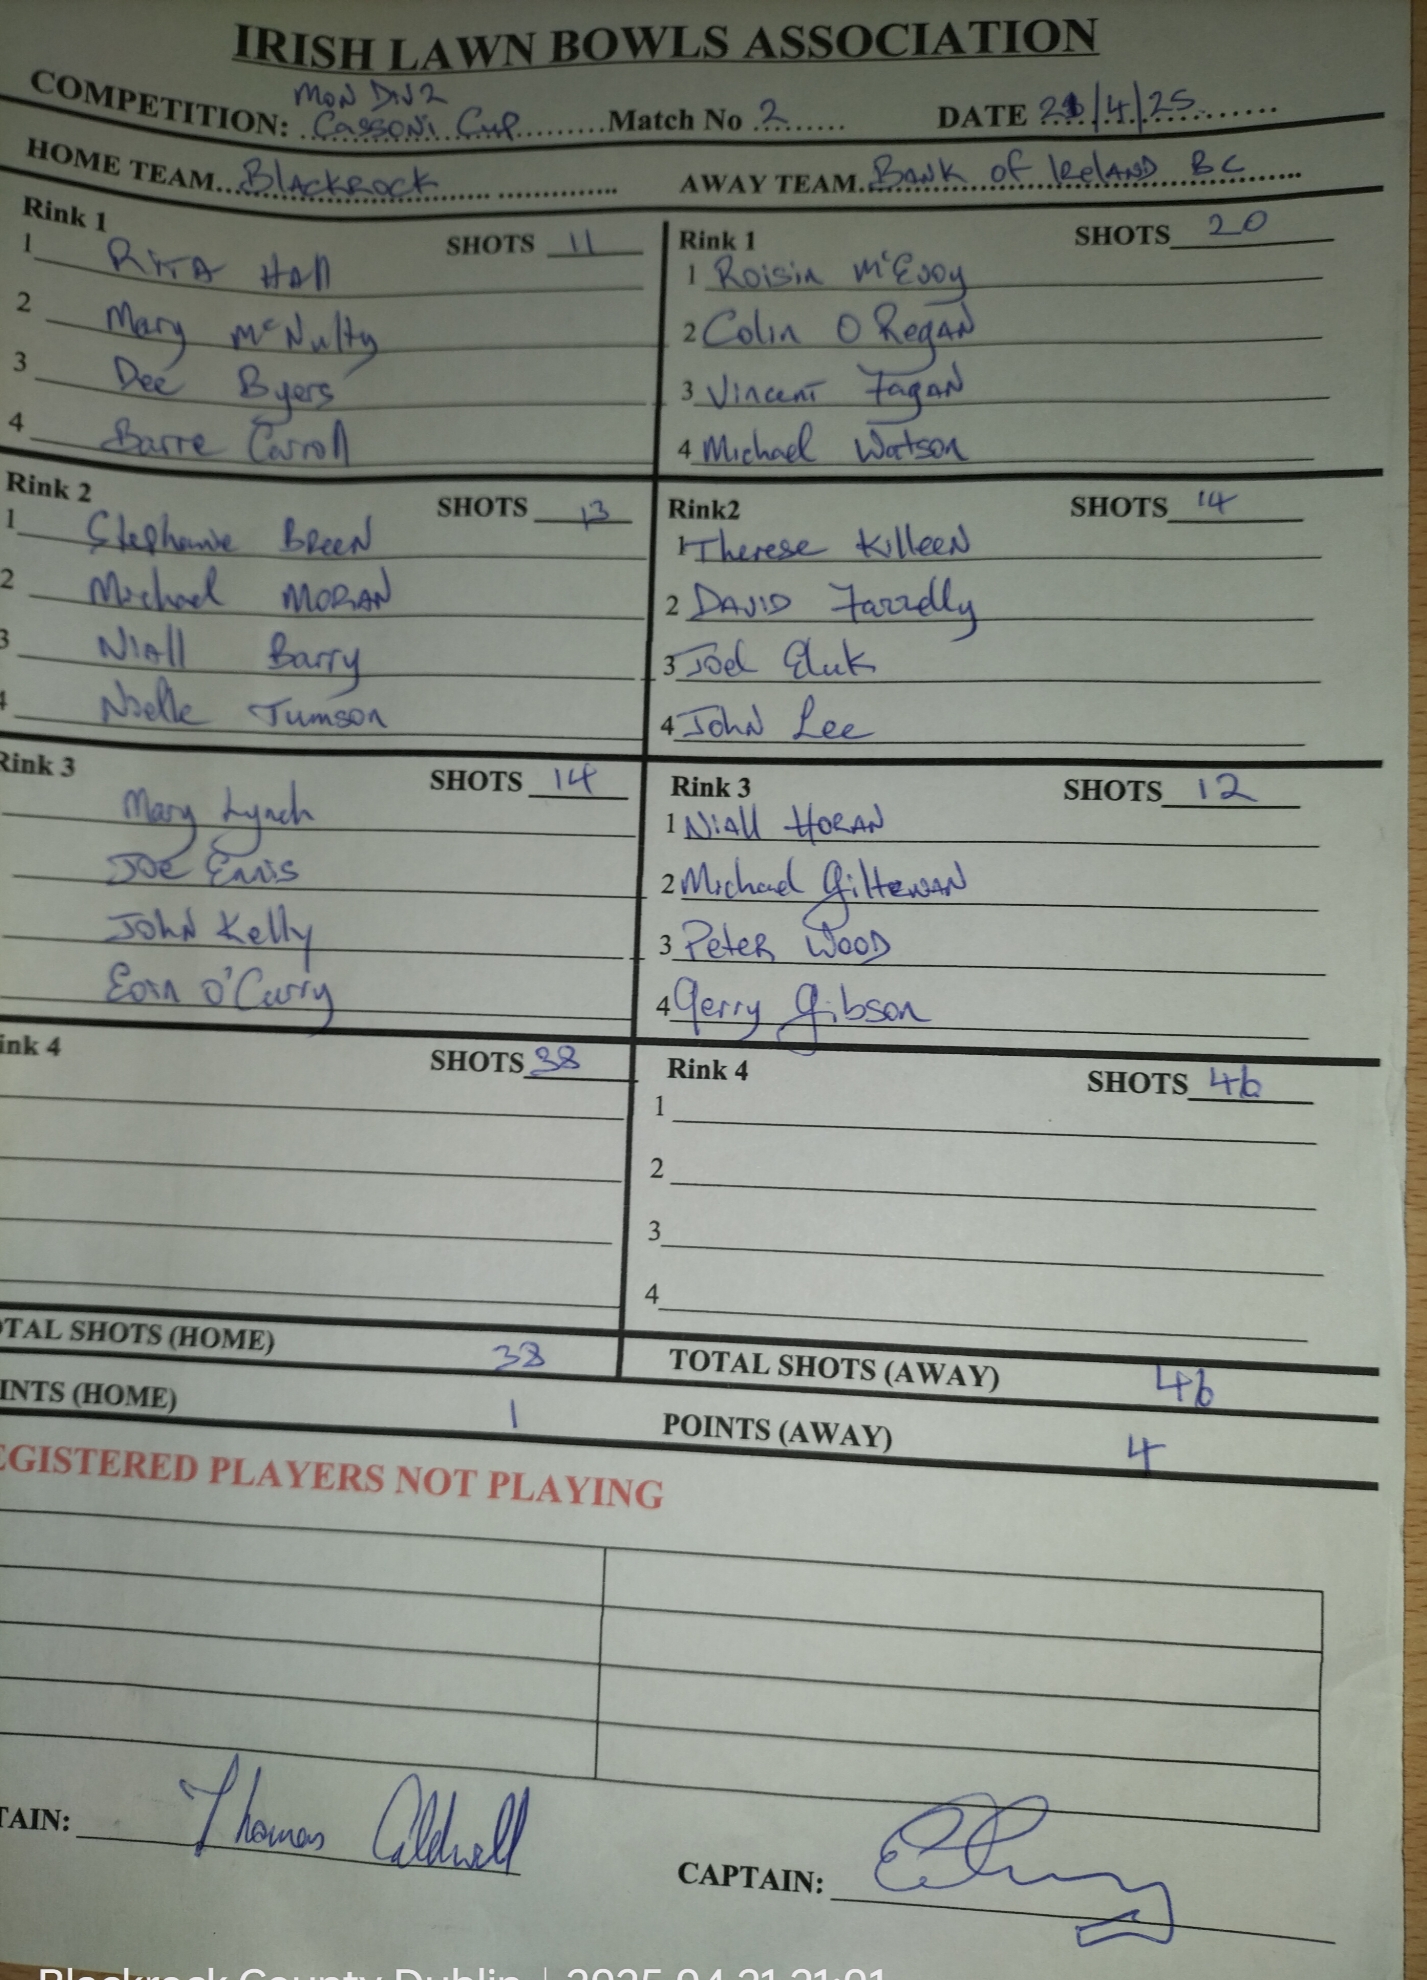 IRISH LAWN BOWLS ASSOCIATION
Mon Div 2
COMPETITION: Cassoni Cup Match No 2 DATE 21/4/25
HOME TEAM Blackrock AWAY TEAM Bank of Ireland BC
Rink 1 SHOTS 11
1 Rita Hall
2 Mary McNulty
3 Dee Byers
4 Barre Carroll
Rink 1 SHOTS 20
1 Roisin McEvoy
2 Colin O Regan
3 Vincent Fagan
4 Michael Watson
Rink 2 SHOTS 13
1 Stephanie Breen
2 Michael Moran
3 Niall Barry
4 Noelle Tumson
Rink2 SHOTS 14
1 Therese Killeen
2 David Farrelly
3 Joe
4 John Lee
Rink 3 SHOTS 14
Mary Lynch
Joe Ennis
John Kelly
Eoin O'Curry
Rink 3 SHOTS 12
1 Niall Horan
2 Michael Giltenan
3 Peter Wood
4 Gerry Gibson
ink 4 SHOTS 38
Rink 4 SHOTS 46
1
2
3
4
OTAL SHOTS (HOME) 38 TOTAL SHOTS (AWAY) 46
INTS (HOME) 1 POINTS (AWAY) 4
EGISTERED PLAYERS NOT PLAYING
TAIN: Thomas Caldwell CAPTAIN:
Blackrock County Dublin | 2025.04.21 21:01